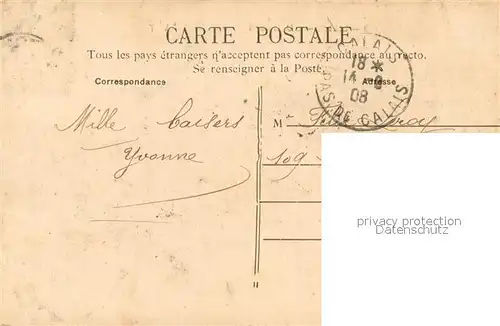 CARTE POSTALE
Tous les pays étrangers n'acceptent pas correspondance au recto.
Se renseigner à la Poste.
Correspondance
Adresse
CALAIS
18 *
14 - 9
08
PAS DE CALAIS
Mille Baisers
Yvonne
M
109
privacy protection
Datenschutz